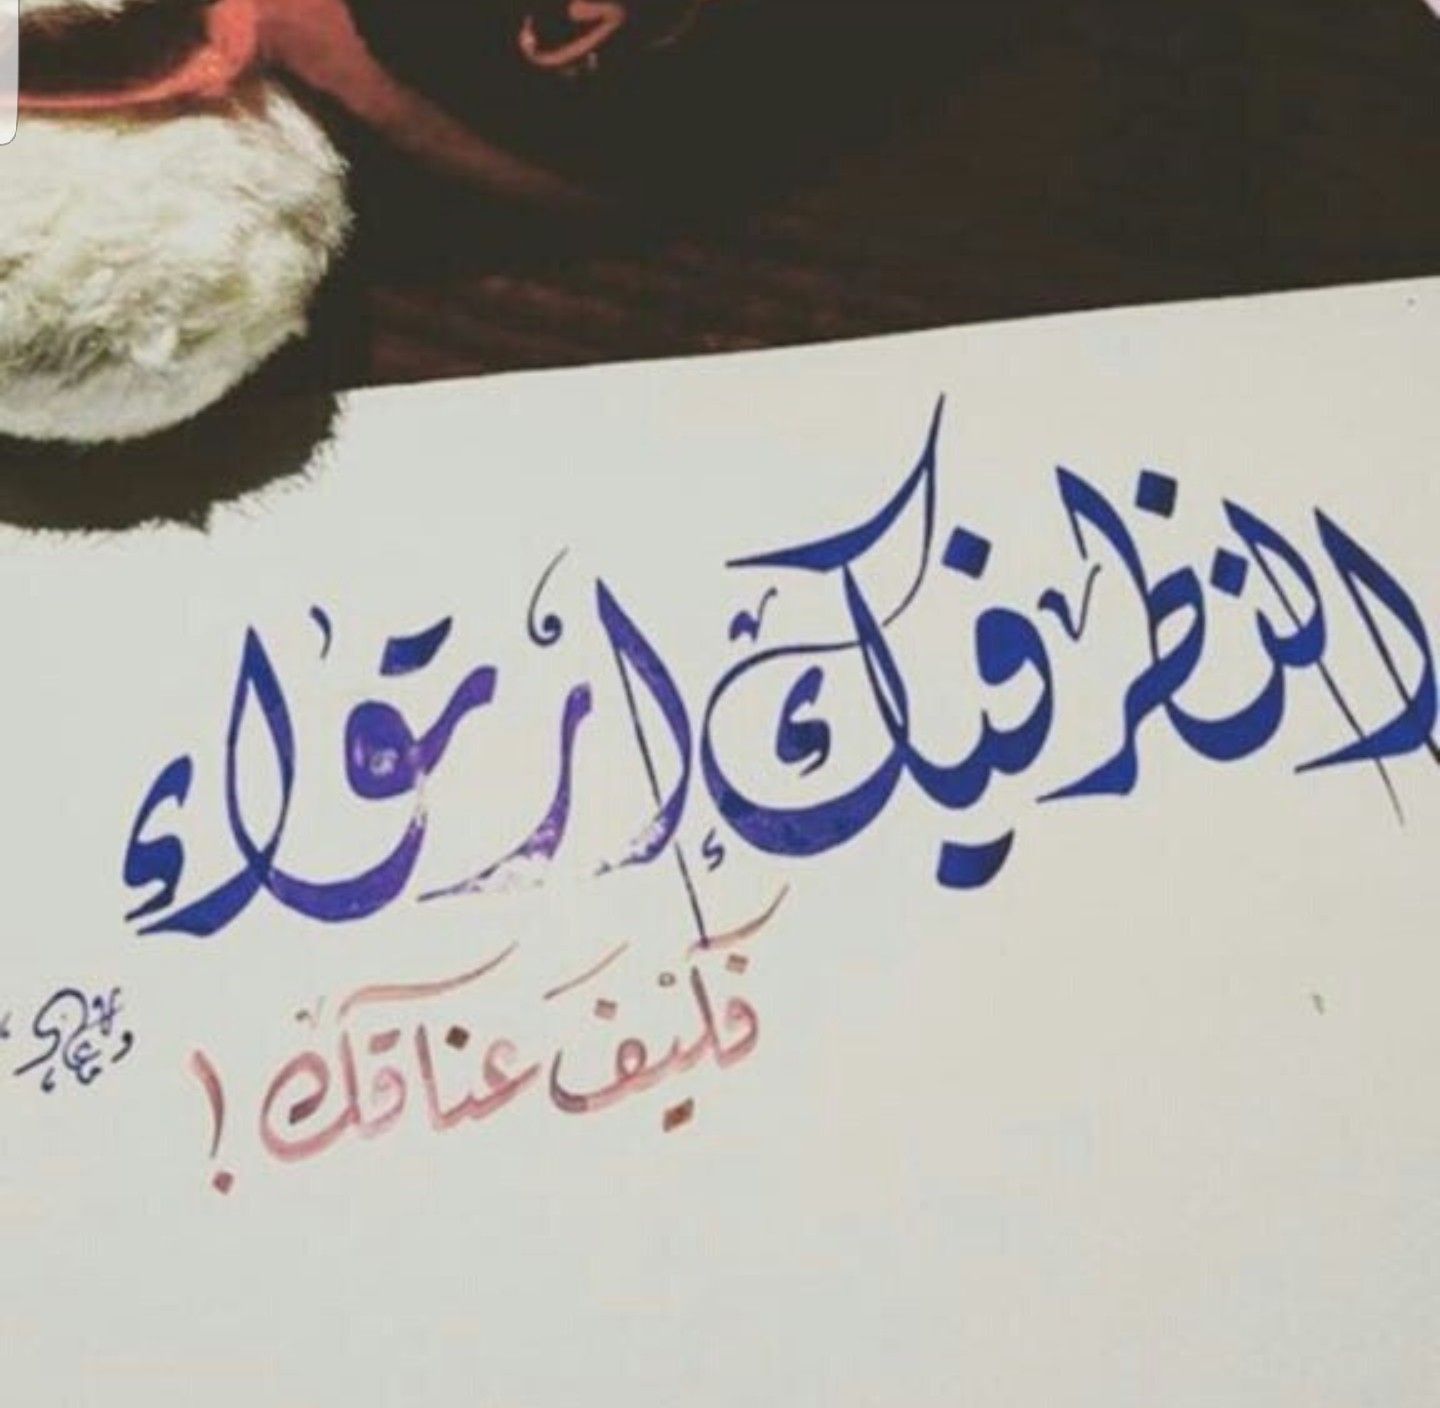 النظر فيك إرتواء
فكيفَ عناقك !